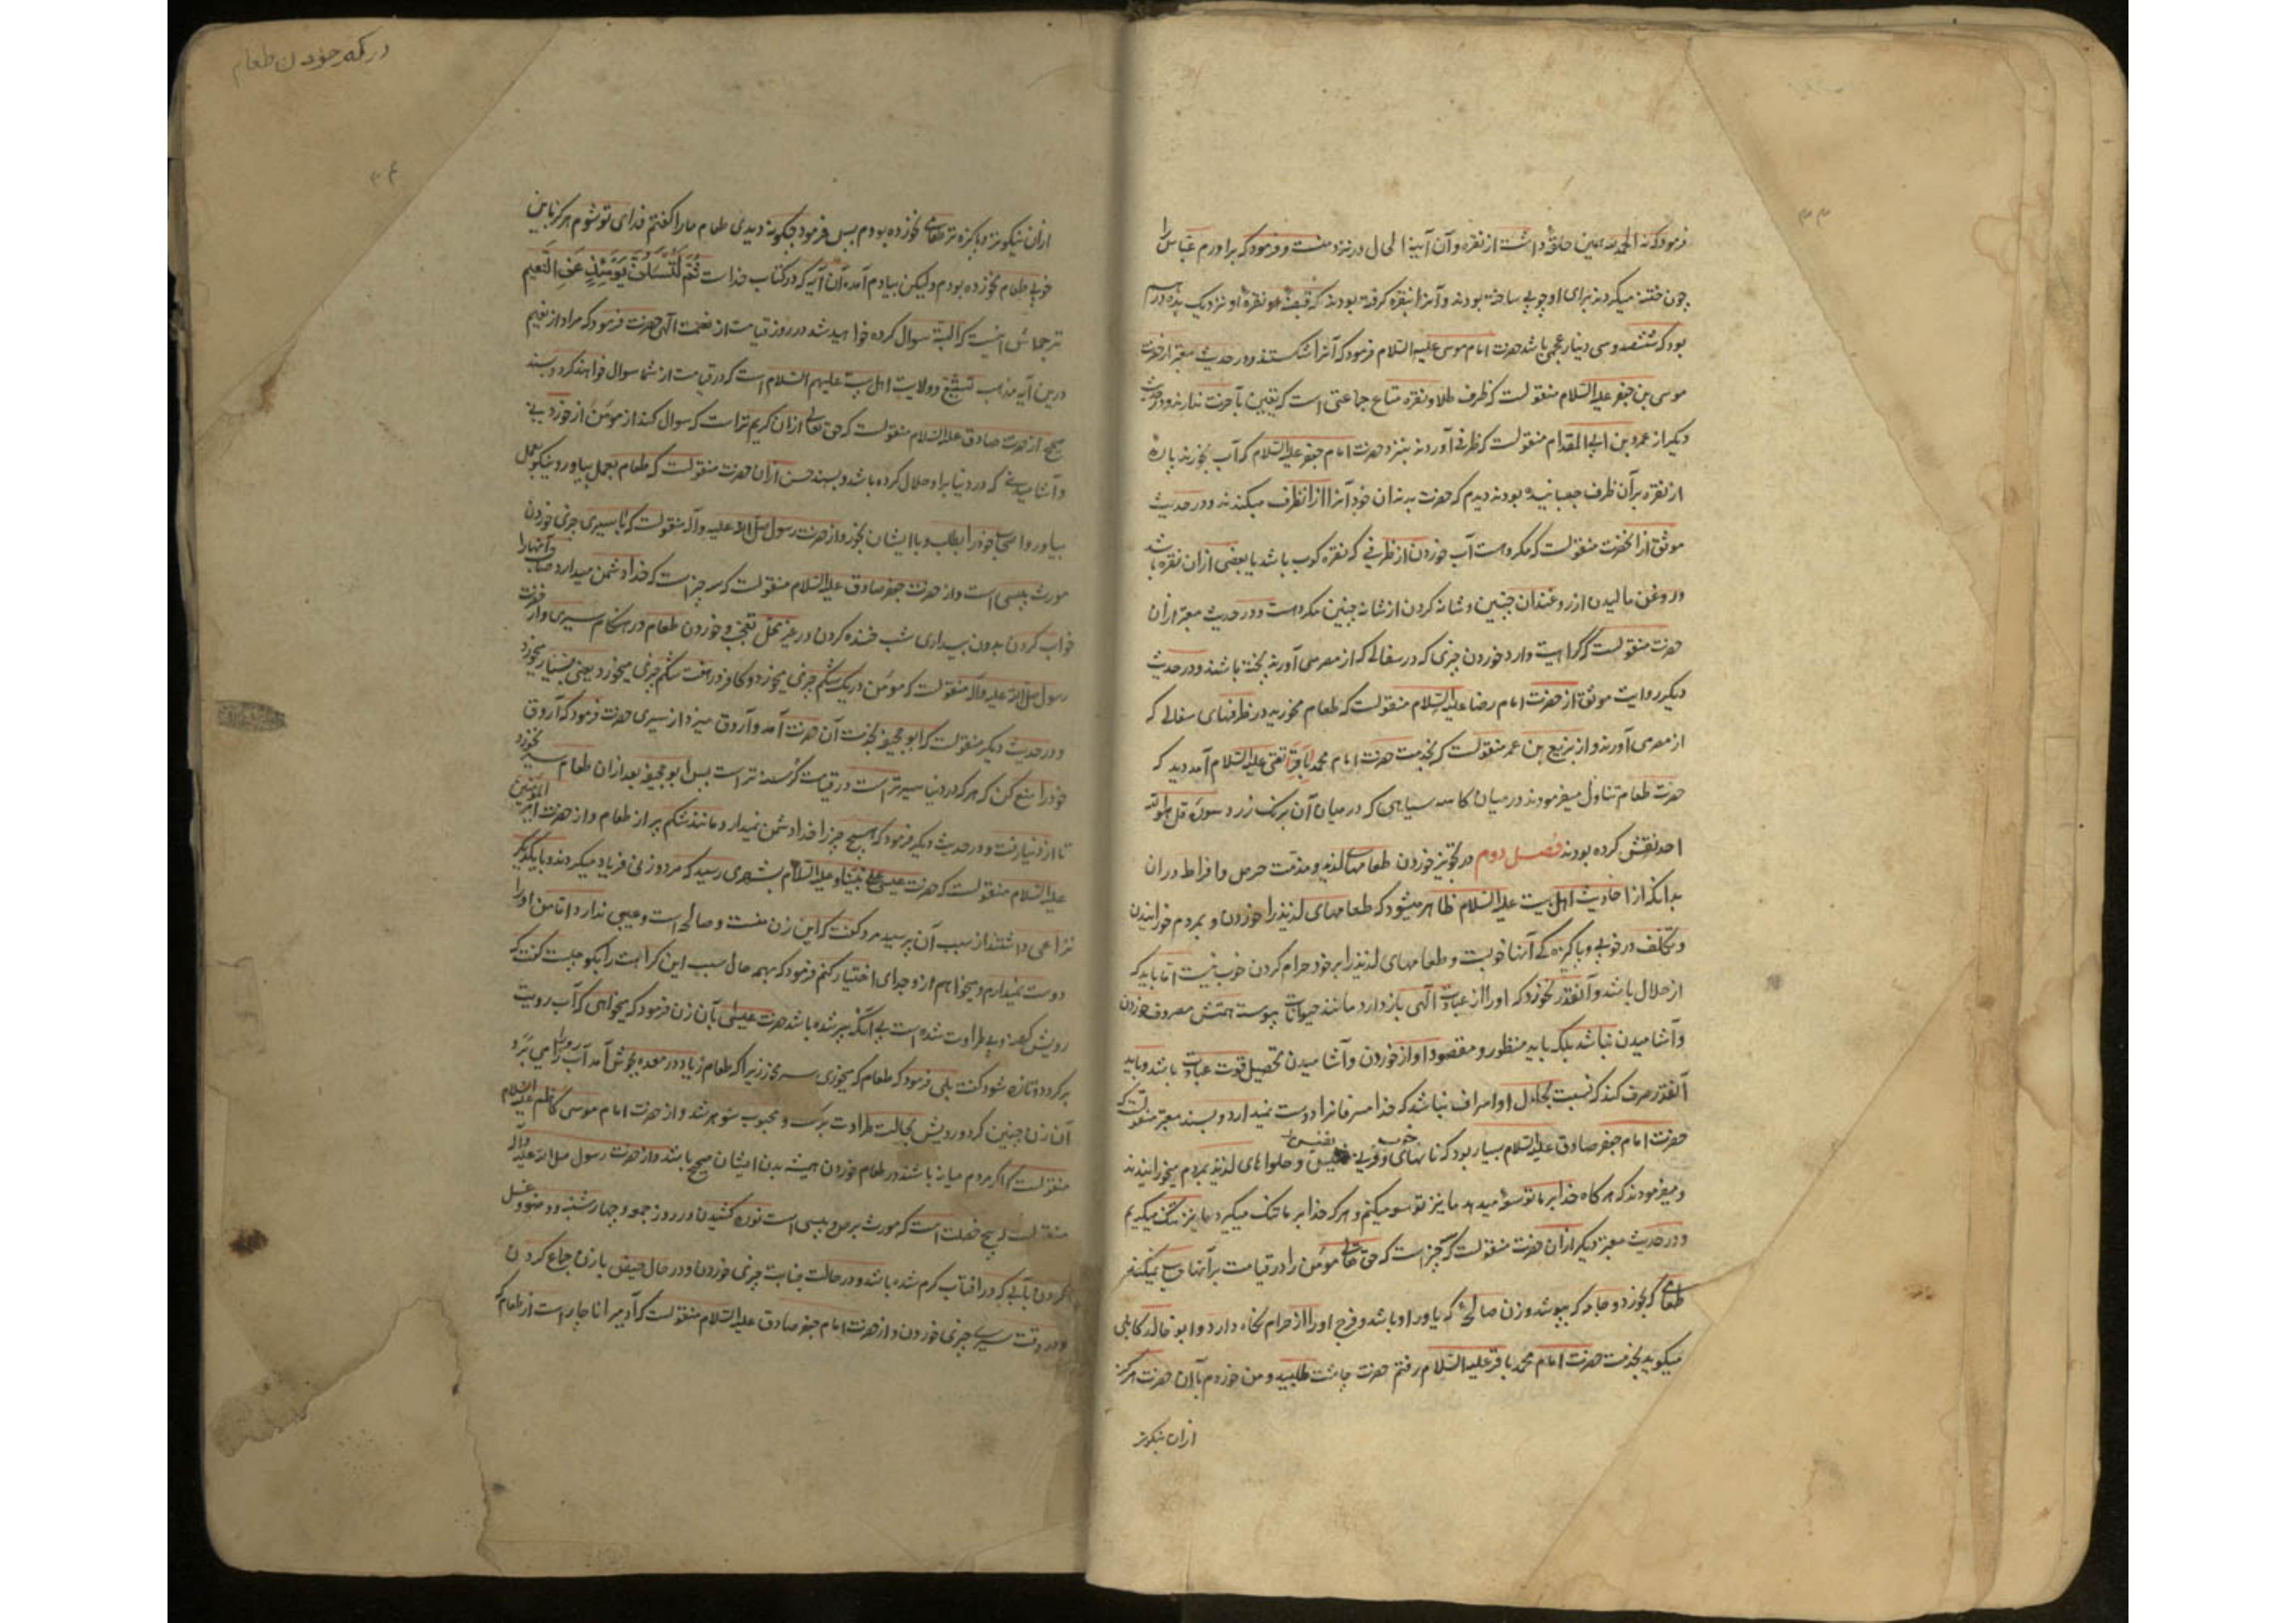 فرمود که نه الحمد لله همین حلقه داشت از نقره و آن آیینه الحال در نزد منست و فرمود که برادرم عباس را
چون ختنه میکردند برای او چوبی ساخته بودند و آنرا بنقره گرفته بودند که نقره او نزدیک بده درهم
بود که ششصد و سی دینار عجمی باشد حضرت امام موسی علیه السلام فرمود که آنرا شکستند و در حدیث معتبر از حضرت
موسی بن جعفر علیه السلام منقولست که ظرف طلا و نقره متاع جماعتی است که یقین بآخرت ندارند و در حدیث
دیگر از عمرو بن ابی المقدام منقولست که ظرفی آوردند بنزد حضرت امام جعفر علیه السلام که آب بخورند پاره
از نقره بر آن ظرف چسبانیده بودند دیدم که حضرت بدندان خود آنرا از انظرف میکندند و در حدیث
موثق از انحضرت منقولست که مکروهست آب خوردن از ظرفی که نقره کوب باشد یا بعضی از ان نقره باشد
و روغن مالیدن از روغندان چنین و شانه کردن از شانه چنین مکروهست و در حدیث معتبر از ان
حضرت منقولست که کراهیت دارد خوردن چیزی که در سفالی که از مصر می آورند پخته باشند و در حدیث
دیگر روایت موثق از حضرت امام رضا علیه السلام منقولست که طعام مخورید در ظرفهای سفالی که
از مصر می آورند و از بزیع بن عمر منقولست که بخدمت حضرت امام محمد باقر تقی علیه السلام آمد دید که
حضرت طعام تناول میفرمودند در میان کاسه سیاهی که در میان آن برنگ زرد سوره قل هو الله
احد نقش کرده بودند فصل دوم در تجویز خوردن طعامهای لذیذ و مذمت حرص و افراط در ان
بدانکه از احادیث اهل بیت علیه السلام ظاهر میشود که طعامهای لذیذ را خوردن و بمردم خورانیدن
و تکلف در خوبی و پاکیزه کی آنها خوبست و طعامهای لذیذ را بر خود حرام کردن خوب نیست اما باید که
از حلال باشد و آنقدر نخورد که او را از عبادت الهی باز دارد مانند حیوانات پیوسته همتش مصروف خوردن
و آشامیدن نباشد بلکه باید منظور و مقصود او از خوردن و آشامیدن تحصیل قوت عبادت باشد و باید
آنقدر صرف کند که نسبت بحال او اسراف نباشد که خدا مسرفانرا دوست نمیدارد و بسند معتبر منقولست که
حضرت امام جعفر صادق علیه السلام بسیار بود که نانهای خوب نفیس و حلواهای لذیذ بمردم میخورانیدند
و میفرمودند که هر گاه خدا بر ما توسعه میدهد ما نیز توسعه میکنم و هر که خدا بر ما تنگ میگیرد ما نیز تنگ میگیریم
و در حدیث معتبر دیگر از ان حضرت منقولست که چیز است که حق تعالی مؤمن را در قیامت بر آنها حساب نمیکند
طعامی که بخورد و جامه که بپوشد و زن صالحه که یاور او باشد و فرج او را از حرام نگاه دارد و ابو خالد کابلی
میگوید بخدمت حضرت امام محمد باقر علیه السلام رفتم حضرت چاشت طلبید و من خوردم با آن حضرت هرگز
ازان نیکوتر
در کم خوردن طعام
ازان نیکوتر و پاکیزه تر طعامی نخورده بودم پس فرمود چگونه دیدی طعام ما را گفتم فدای تو شوم هرگز باین
خوبی طعام نخورده بودم ولیکن بیادم آمد آن آیه که در کتاب خداست ثُمَّ لَتُسْئَلُنَّ یَوْمَئِذٍ عَنِ النَّعیم
ترجمه اش اینست که البته سوال کرده خواهید شد در روز قیامت از نعمت الهی حضرت فرمود که مراد از نعیم
درین آیه مذهب تشیع و ولایت اهل بیت علیهم السلام است که در قیامت از شما سوال خواهند کرد و بسند
صحیح از حضرت صادق علیه السلام منقولست که حق تعالی از ان کریم تر است که سوال کند از مؤمن از خوردنی
و آشامیدنی که در دنیا برا و حلال کرده باشد و بسند حسن از ان حضرت منقولست که طعام بعمل بیاور و نیکو بعمل
بیاور و اصحاب خود را بطلب و با ایشان بخور و از حضرت رسول صلی الله علیه و آله منقولست که با سیری چیزی خوردن
مورث پیسی است و از حضرت جعفر صادق علیه السلام منقولست که سه چیز است که خدا دشمن میدارد صاحب آنها را
خواب کردن بدون بیداری شب خنده کردن در غیر محل تعجب و خوردن طعام در هنگام سیری و از حضرت
رسول صلی الله علیه و آله منقولست که مؤمن در یک شکم چیزی میخورد و کافر در هفت شکم چیزی میخورد یعنی بسیار میخورد
و در حدیث دیگر منقولست که ابو جحیفه بخدمت آن حضرت آمد و آروق میزد از سیری حضرت فرمود که آروق
خود را منع کن که هر که در دنیا سیر تر است در قیامت گرسنه تر است پس ابو جحیفه بعد از ان طعام سیر نخورد
تا از دنیا رفت و در حدیث دیگر فرمود که هیچ چیز را خدا دشمن نمیدارد مانند شکم پر از طعام و از حضرت امیر المؤمنین
علیه السلام منقولست که حضرت عیسی علی نبینا و علیه السلام بشهری رسید که مرد و زنی فریاد میکردند و با یکدیگر
نزاعی داشتند از سبب آن پرسید مرد گفت که این زن منست و صالحه است و عیبی ندارد اما من او را
دوست نمیدارم و میخواهم از و جدای اختیار کنم فرمود که بهمه حال سبب این کراهت را بگو چیست گفت که
رویش کهنه و بی طراوت شده است بی انکه پیر شده باشد حضرت عیسی بآن زن فرمود که میخواهی که آب رویت
برگردد و تازه شود گفت بلی فرمود که طعام که میخوری سیر مخور زیرا که طعام زیاد در معده بجوش آمد آب رو را می برد
آن زن چنین کرد و رویش بحالت طراوت برگشت و محبوب شوهر شد و از حضرت امام موسی کاظم علیه السلام
منقولست که اگر مردم میانه باشند در طعام خوردن همیشه بدن ایشان صحیح باشد و از حضرت رسول صلی الله علیه و آله
منقولست که پنج خصلت است که مورث برص و پیسی است نوره کشیدن در روز جمعه و چهارشنبه و وضو و غسل
کردن بآبی که در افتاب گرم شده باشد و در حالت جنابت چیزی خوردن و در حال حیض با زن جماع کردن
و در وقت سیری چیزی خوردن و از حضرت امام جعفر صادق علیه السلام منقولست که آدمیرا ناچار است از طعام که